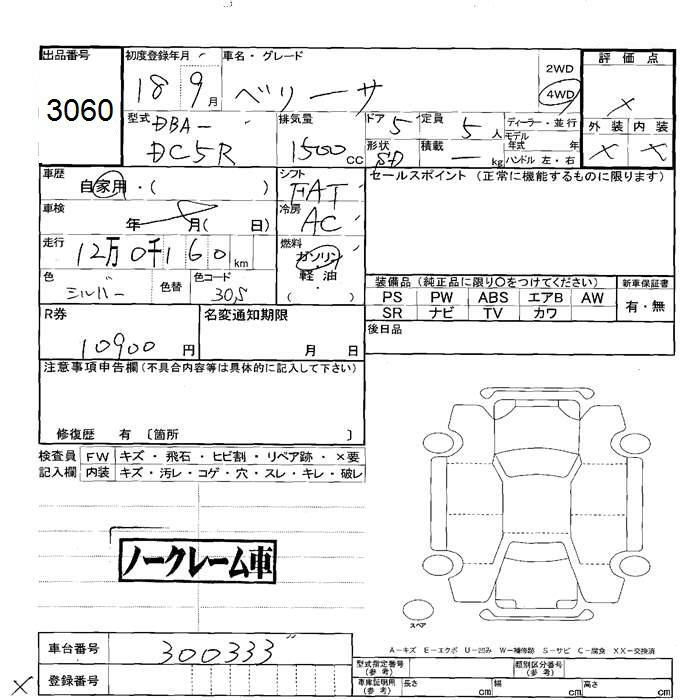 出品番号 初度登録年月 車名・グレード 評価点
3060 18 9月 ベリーサ 2WD 4WD ×
型式 DBA- 排気量 ドア 5 定員 5人 ディーラー・並行 外装 内装
DC5R 1500cc 形状 SD 積載 ー kg モデル年式 年 ハンドル 左・右 × ×
車歴 自家用・( ) シフト FAT セールスポイント (正常に機能するものに限ります)
車検 年 月( 日) 冷房 AC
走行 12万0千160km 燃料 ガソリン
色 シルバー 色替 色コード 30S 軽油・( )
装備品(純正品に限り〇をつけてください) 新車保証書
PS PW ABS エアB AW 有・無
SR ナビ TV カワ
R券 名変通知期限 後日品
10900円 月 日
注意事項申告欄(不具合内容等は具体的に記入して下さい)
修復歴 有 〔箇所 〕
検査員 FW キズ・飛石・ヒビ割・リペア跡・×要
記入欄 内装 キズ・汚レ・コゲ・穴・スレ・キレ・破レ
ノークレーム車
スペア
A-キズ E-エクボ U-凹み W-補修跡 S-サビ C-腐食 XX-交換済
車台番号 300333
型式指定番号(参考) 類別区分番号(参考)
× 登録番号
車庫証明用(参考) 長さ cm 幅 cm 高さ cm